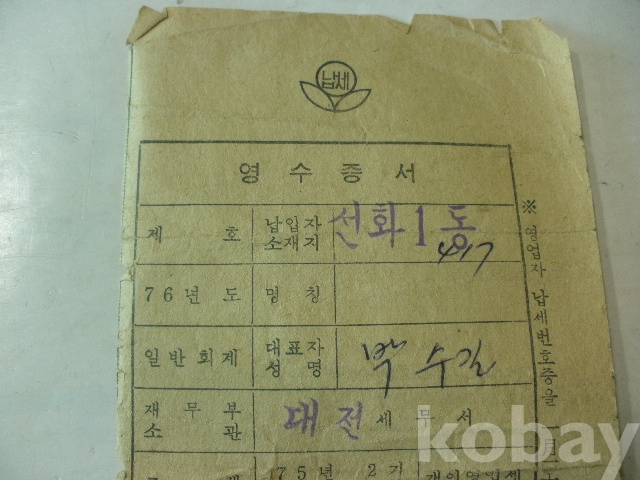 납세
영 수 증 서
제 호 납입자 소재지 선화 1 동
76년 도 명 칭
일반회계 대표자 성 명 박 수길
재 무 부 소 관 대전 세 무 서
75년 2기
※ 영업자 납세번호증을
kobay